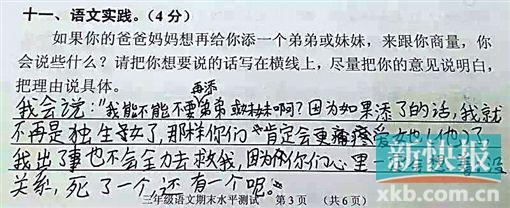 十一、语文实践。(4分)
如果你的爸爸妈妈想再给你添一个弟弟或妹妹，来跟你商量，你
会说些什么？请把你想要说的话写在横线上，尽量把你的意见说明白，
把理由说具体。
再添
我会说："我能不能不要弟弟或妹妹啊？因为如果添了的话，我就
不再是独生女了，那样你们肯定会更痛爱她！他了
我出了事也不会全力去救我，因为你们心里一
关系，死了一个，还有一个呢。"
三年级语文期末水平测试 第3页 (共6页)
新快报
xkb.com.cn